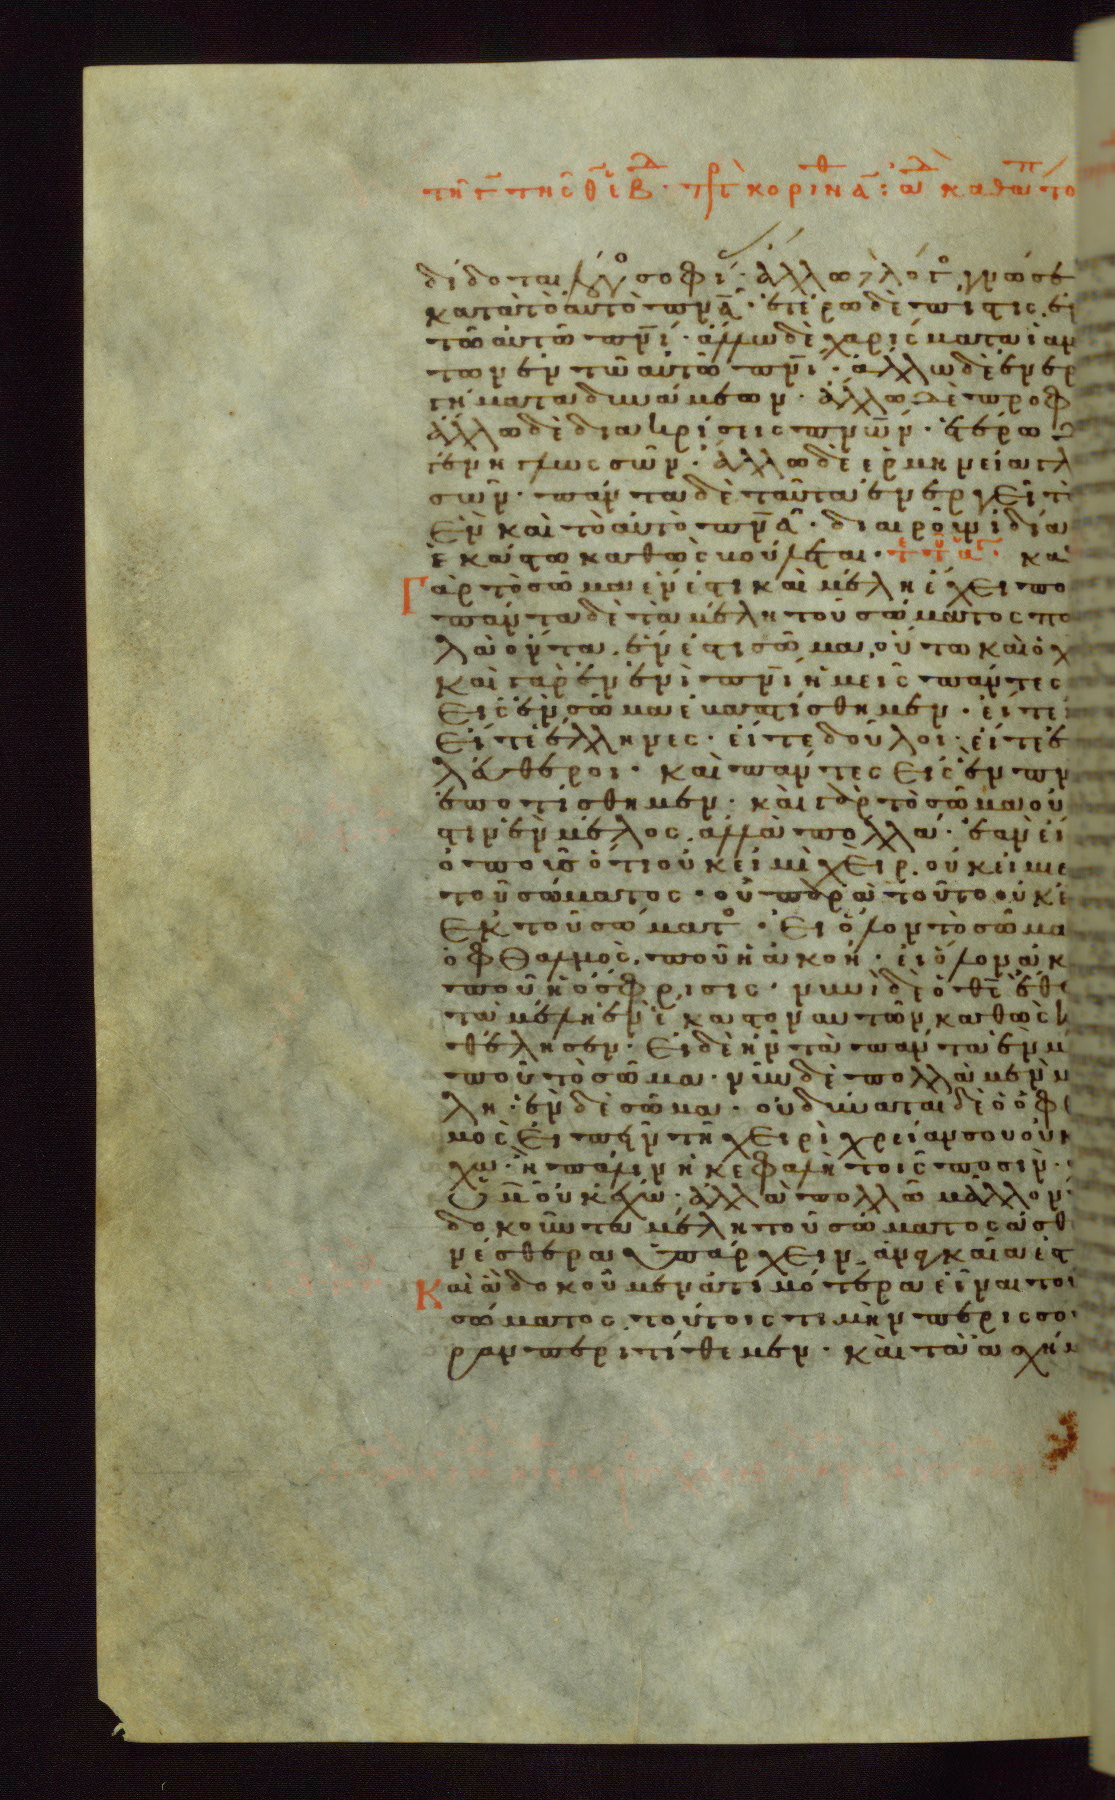 δίδοται λόγος σοφί· ἄλλω λόγος γνώσε
κατὰ τὸ αὐτὸ πνα· ἑτέρω δὲ πιστις, ἐν
τῶ αὐτῶ πνι· ἄλλω δὲ χαρίσματα ἰαμ
των ἐν τῶ αὐτῶ πνι· ἄλλω δὲ ἐνερ
γήματα δυνάμεων· ἄλλω δὲ προφ
ἄλλω δὲ διακρίσεις πνῶν· ἑτέρω δ
γένη γλωσσῶν· ἄλλω δὲ ἑρμηνεία γλ
σῶν· πάντα δὲ ταῦτα ἐνεργεῖ τὸ
ἓν καὶ τὸ αὐτὸ πνα· διαιροῦν ἰδία
ἑκάστω καθὼς βούλεται· κα
Γὰρ τὸ σῶμα ἕν ἐστι καὶ μέλη ἔχει πο
πάντα δὲ τὰ μέλη τοῦ σώματος πο
λὰ ὄντα, ἕν ἐστι σῶμα, οὕτω καὶ ὁ χ
καὶ γὰρ ἐν ἑνὶ πνι ἡμεῖς πάντες
εἰς ἓν σῶμα ἐβαπτίσθημεν· εἴτε
εἴτε ἕλληνες· εἴτε δοῦλοι· εἴτε ἐ
λεύθεροι· καὶ πάντες εἰς ἓν πν
ἐποτίσθημεν· καὶ γὰρ τὸ σῶμα οὐ
στιν ἓν μέλος, ἀλλὰ πολλά· ἐὰν εἴ
ὁ ποῦς ὅτι οὐκ εἰμὶ χεὶρ, οὐκ εἰμὶ ε
τοῦ σώματος· οὐ παρὰ τοῦτο οὐκ ἔ
ἐκ τοῦ σώματος· εἰ ὅλον τὸ σῶμα
ὀφθαλμὸς, ποῦ ἡ ἀκοή· εἰ ὅλον ἀκ
ποῦ ἡ ὄσφρισις· νυνὶ δὲ ὁ θς ἔθε
τὰ μέλη ἓν ἕκαστον αὐτῶν καθὼς
θέλησεν· εἰ δὲ ἦν τὰ πάντα ἓν μ
ποῦ τὸ σῶμα· νῦν δὲ πολλὰ μὲν μ
λη· ἓν δὲ σῶμα· οὐ δύναται δὲ ὁ ὀφ
μὸς εἰπεῖν τῆ χειρὶ χρείαν σου οὐκ
χω· ἢ πάλιν ἡ κεφαλὴ τοῖς ποσὶν·
ὑμῶν οὐκ ἔχω· ἀλλὰ πολλῶ μᾶλλον
δοκοῦντα μέλη τοῦ σώματος ἀσθ
νέστερα ὑπάρχειν, ἀναγκαῖά ἐστ
Καὶ ἃ δοκοῦμεν ἀτιμότερα εἶναι τοῦ
σώματος, τούτοις τιμὴν περισσο
ραν περιτίθεμεν· καὶ τὰ ἀσχήμ